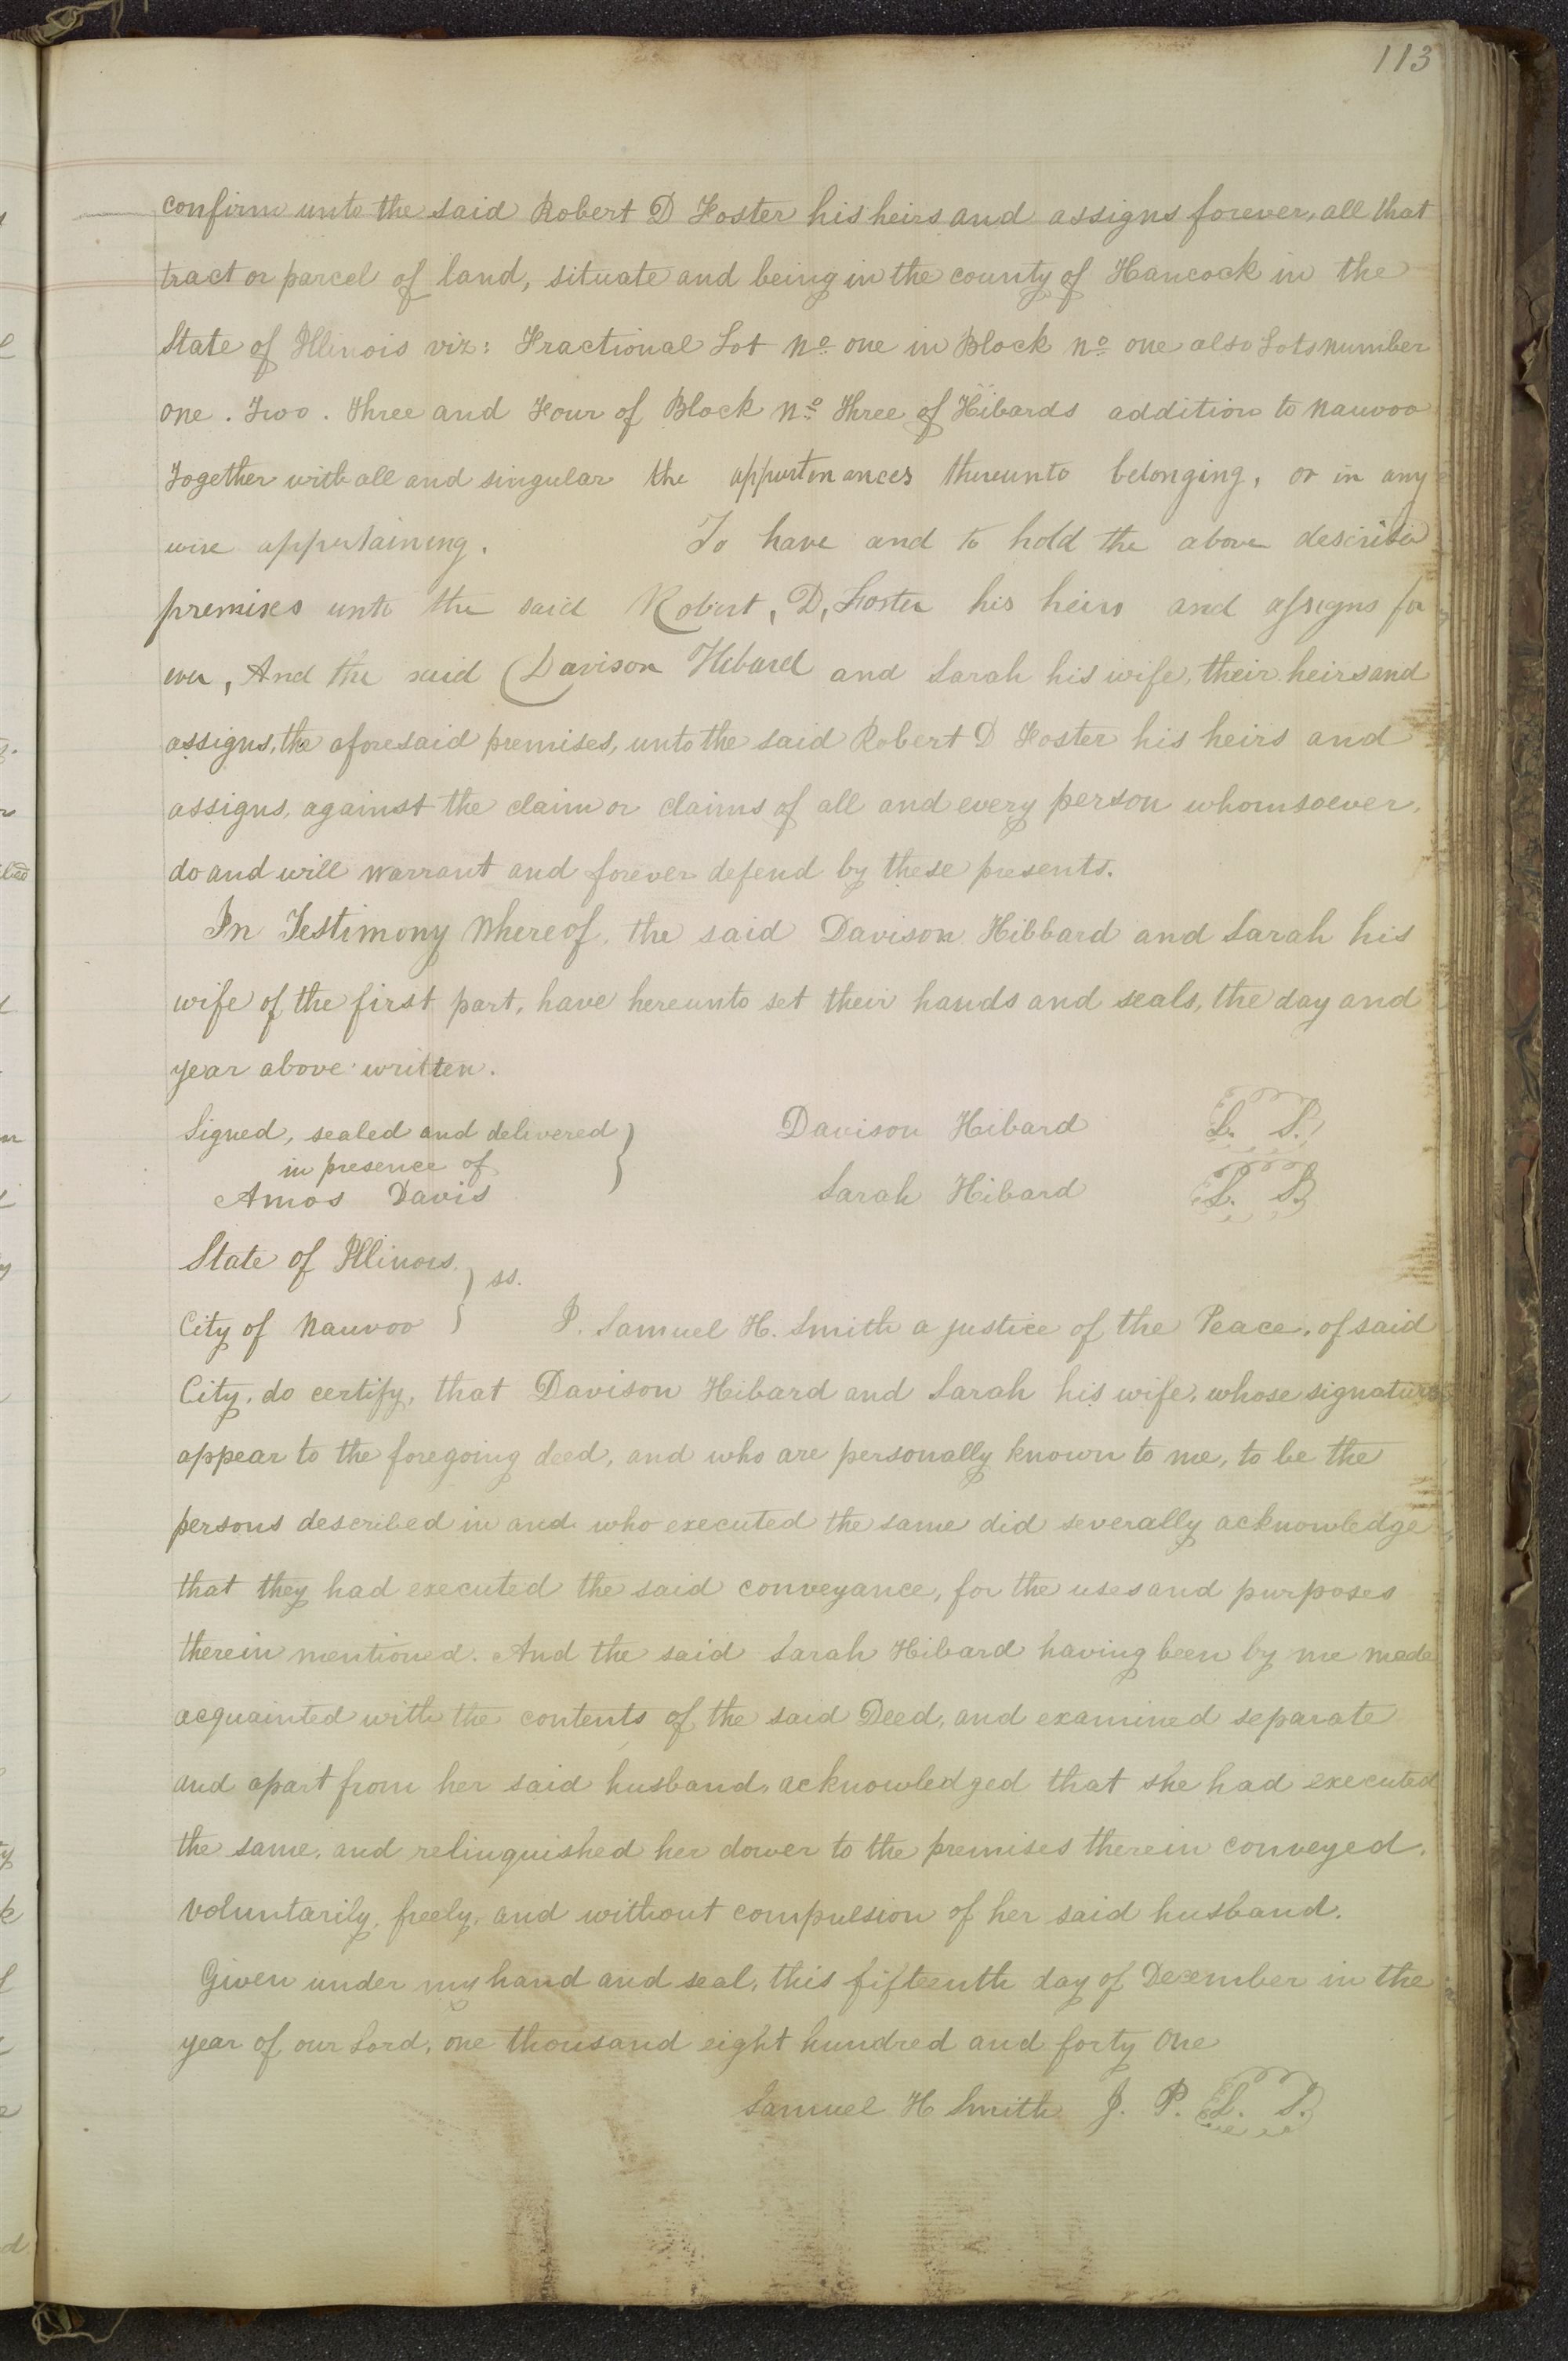 113
confirm unto the said Robert D Foster his heirs and assigns forever, all that
tract or parcel of land, situate and being in the county of Hancock in the
State of Illinois viz: Fractional Lot No one in Block No one also Lots number
one. Two. Three and Four of Block No Three of Hibards addition to Nauvoo
Together with all and singular the appurtenances thereunto belonging, or in any
wise appertaining. To have and to hold the above described
premises unto the said Robert, D, Foster his heirs and assigns for
ever, And the said Davison Hibard and Sarah his wife, their heirs and
assigns, the aforesaid premises, unto the said Robert D Foster his heirs and
assigns, against the claim or claims of all and every person whomsoever,
do and will warrant and forever defend by these presents.
In Testimony Whereof, the said Davison Hibbard and Sarah his
wife of the first part, have hereunto set their hands and seals, the day and
year above written.
Signed, sealed and delivered } Davison Hibard L. S.
in presence of
Amos Davis Sarah Hibard L. S.
State of Illinois } ss.
City of Nauvoo } I. Samuel H. Smith a justice of the Peace, of said
City, do certify, that Davison Hibard and Sarah his wife, whose signatures
appear to the foregoing deed, and who are personally known to me, to be the
persons described in and who executed the same did severally acknowledge
that they had executed the said conveyance, for the uses and purposes
therein mentioned. And the said Sarah Hibard having been by me made
acquainted with the contents of the said Deed, and examined separate
and apart from her said husband, acknowledged that she had executed
the same, and relinquished her dower to the premises therein conveyed,
voluntarily, freely, and without compulsion of her said husband.
Given under my hand and seal, this fifteenth day of December in the
year of our Lord, one thousand eight hundred and forty One
Samuel H Smith J. P. L. S.